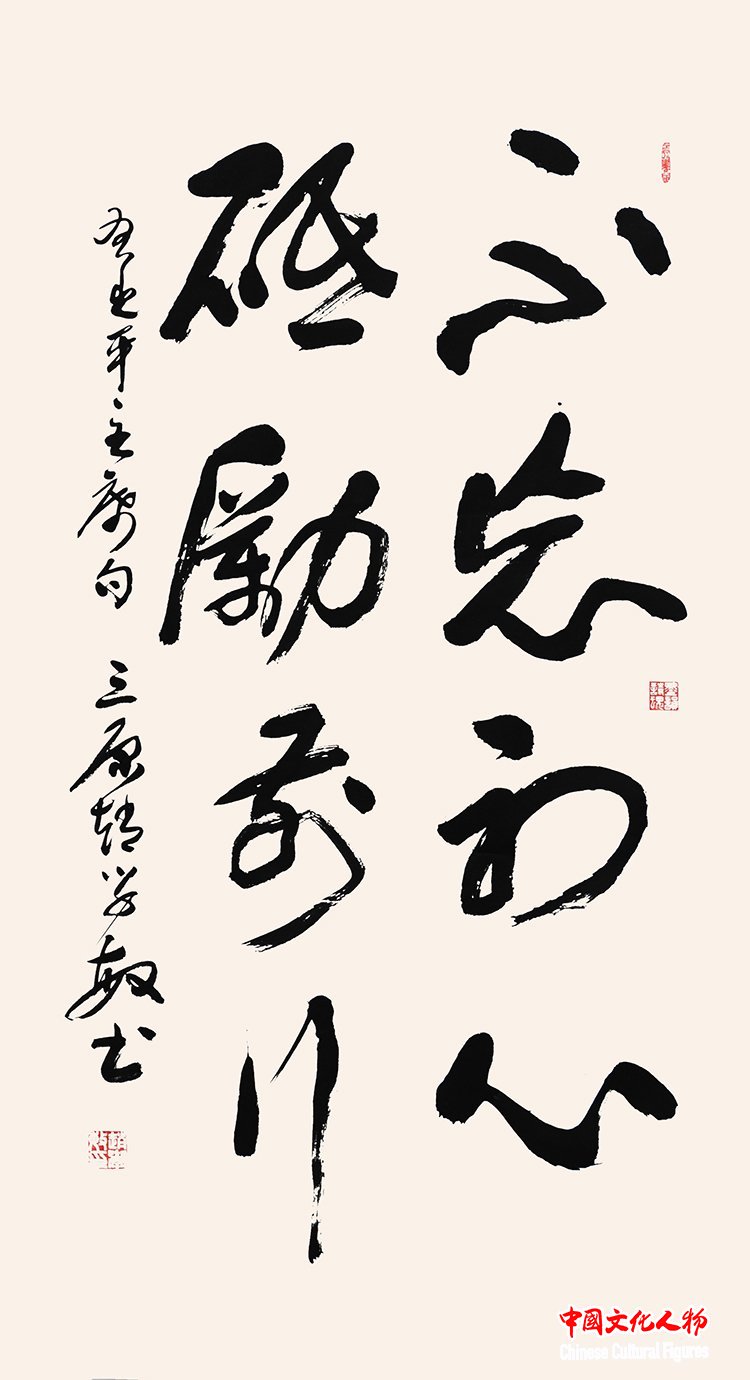 不忘初心
砥勵前行
近平主席句 三原趙学敏书
中國文化人物
Chinese Cultural Figures